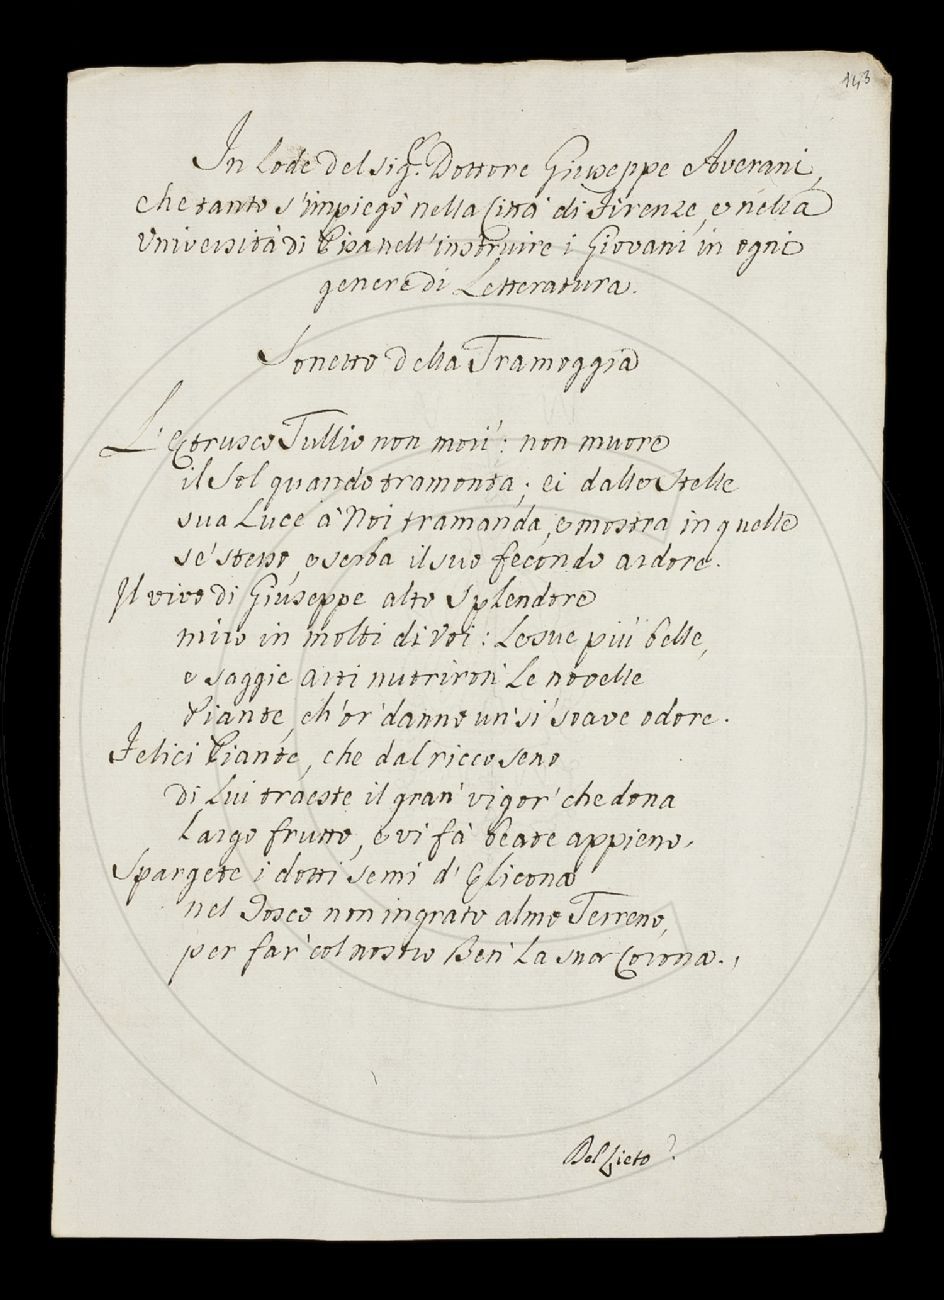 143
In Lode del Sig.r Dottore Giuseppe Averani,
che tanto s'impiegò nella Città di Firenze, e nella
Università di Pisa nell'instruire i Giovani in ogni
genere di Letteratura.
Sonetto della Tramoggia
L'Etrusco Tullio non morì: non muore
il Sol quando tramonta; ei dalle Stelle
sua Luce à Noi tramanda, e mostra in quelle
sè stesso, e serba il suo fecondo ardore.
Il vivo di Giuseppe alto Splendore
miro in molti di Voi: Le sue più belle,
e saggie arti nutriron' Le novelle
Piante, ch'or' danno un' sì soave odore.
Felici Piante, che dal ricco seno
di Lui traeste il gran' vigor' che dona
Largo frutto, e vi fà beate appieno.
Spargete i dotti semi d'Elicona
nel Tosco non ingrato almo Terreno,
per far' col nostro Ben' La sua Corona.
Del Lieto